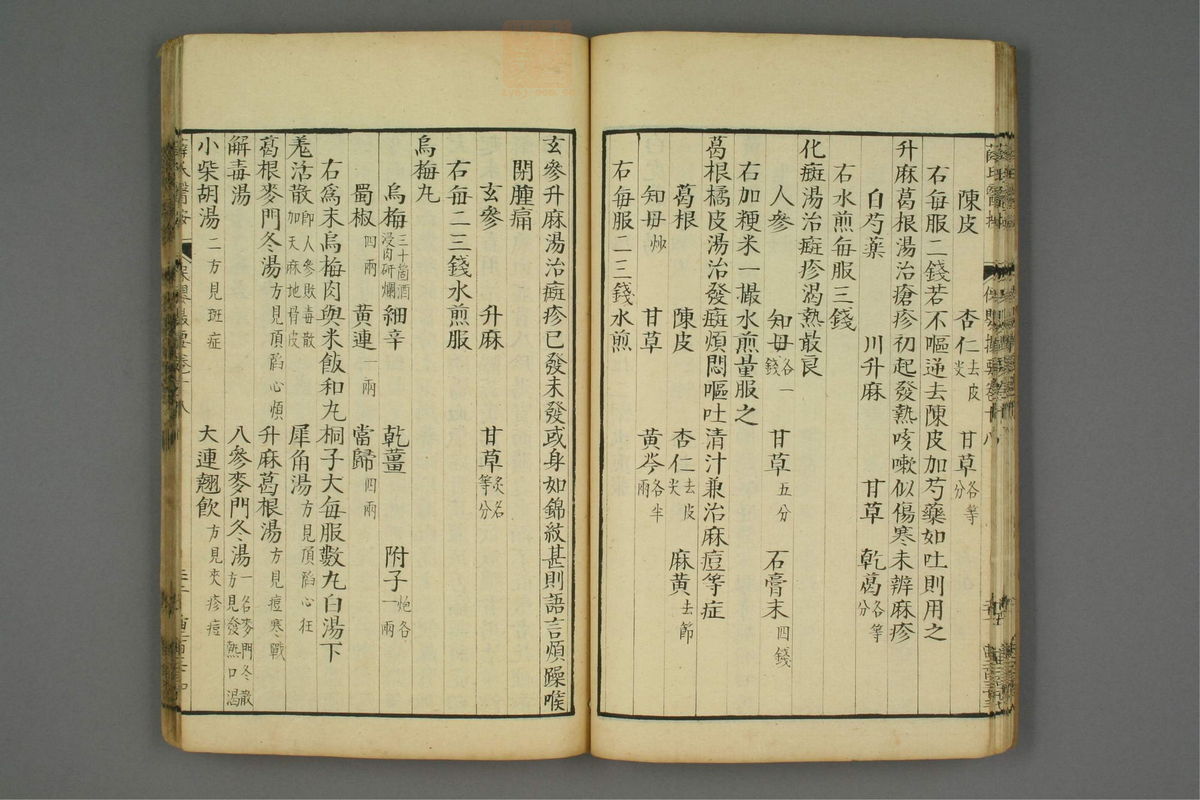 陳皮 杏仁去皮尖 甘草各等分
右每服二錢若不嘔逆去陳皮加芍藥如吐則用之
升麻葛根湯治瘡疹初起發熱咳嗽似傷寒未辨麻疹
白芍藥 川升麻 甘草 乾葛各等分
右水煎每服三錢
化癍湯治癍疹渴熱最良
人參 知母各一錢 甘草五分 石膏末四錢
右加粳米一撮水煎量服之
葛根橘皮湯治發癍煩悶嘔吐清汁兼治麻痘等症
葛根 陳皮 杏仁去皮尖 麻黃去節
知母炒 甘草 黃芩各半兩
右每服二三錢水煎
玄參升麻湯治癍疹已發未發或身如錦紋甚則語言煩躁喉
閉腫痛
玄參 升麻 甘草炙各等分
右每二三錢水煎服
烏梅丸
烏梅三十箇酒浸肉研爛 細辛 乾薑 附子炮各一兩
蜀椒四兩 黃連一兩 當歸四兩
右為末烏梅肉與米飯和丸桐子大每服數丸白湯下
羗活散即人參敗毒散加天麻地骨皮 犀角湯方見頂陷心狂
葛根麥門冬湯方見頂陷心煩 升麻葛根湯方見痘寒戰
解毒湯 八參麥門冬湯一名麥門冬散方見發熱口渴
小柴胡湯二方見斑症 大連翹飲方見夾疹痘